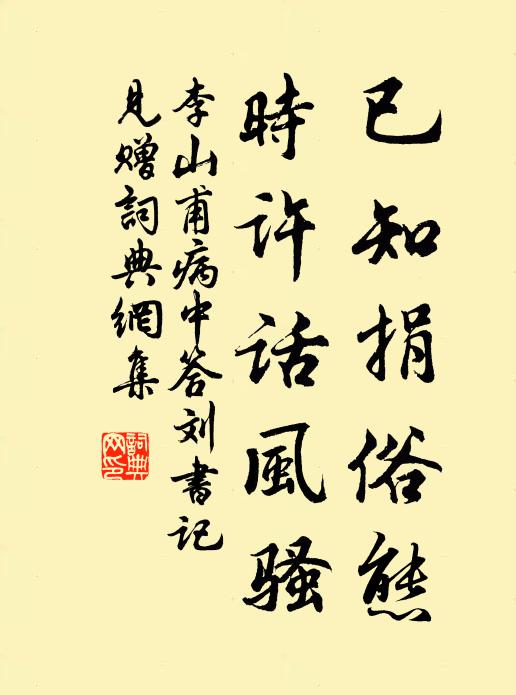 已知捐俗態
時許話風騷
李山甫病中答刘書记
見贈詞典網集
詞典网印